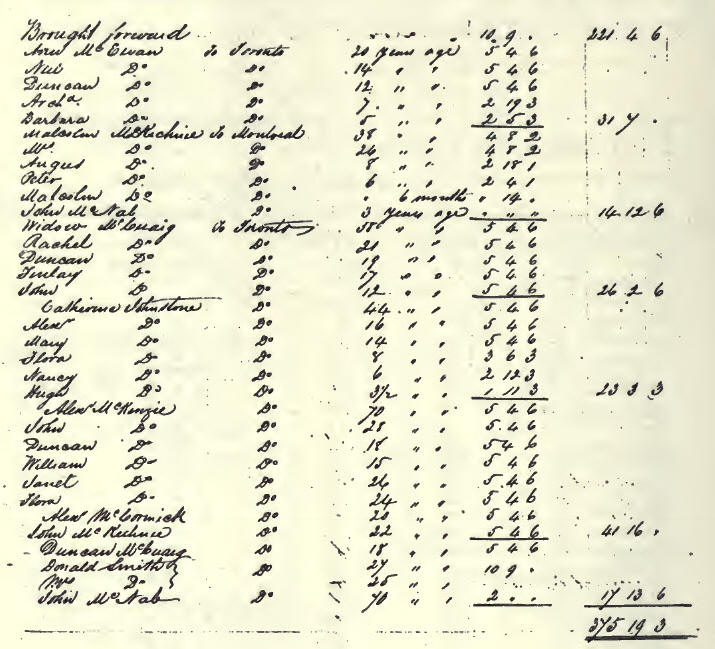 Brought forward 10 9 . 221 4 6
And McEwan To Toronto 20 Years age 5 4 6
Neil Do Do 14 " " 5 4 6
Duncan Do Do 12 " " 5 4 6
Archd Do Do 7 " " 2 19 3
Barbara Do Do 5 " " 2 5 3 31 7 .
Malcolm McKechnie To Montreal 38 " " 4 8 2
Mrs Do Do 26 " " 4 8 2
Angus Do Do 8 " " 2 18 1
Peter Do Do 6 " " 2 4 1
Malcolm Do Do " 6 month " 14 .
John McNab Do 3 Years age " " " 14 12 6
Widow McCuaig To Toronto 58 " " 5 4 6
Rachel Do Do 21 " " 5 4 6
Duncan Do Do 19 " " 5 4 6
Finlay Do Do 17 " " 5 4 6
John Do Do 12 " " 5 4 6 26 2 6
Catherine Johnstone Do 44 " " 5 4 6
Alexr Do Do 16 " " 5 4 6
Mary Do Do 14 " " 5 4 6
Flora Do Do 8 " " 3 6 3
Nancy Do Do 6 " " 2 12 3
Hugh Do Do 3½ " " 1 11 3 23 3 3
Alexr McKenzie Do 70 " " 5 4 6
John Do Do 28 " " 5 4 6
Duncan Do Do 18 " " 5 4 6
William Do Do 15 " " 5 4 6
Janet Do Do 26 " " 5 4 6
Flora Do Do 24 " " 5 4 6
Alexr McCormick Do 20 " " 5 4 6
John McKechnie Do 22 " " 5 4 6 41 16 .
Duncan McCuaig Do 18 " " 5 4 6
Donald Smith Do 27 " " 10 9 .
Mrs Do 25 " "
John McNab Do 70 " " 2 . . 17 13 6
375 19 3